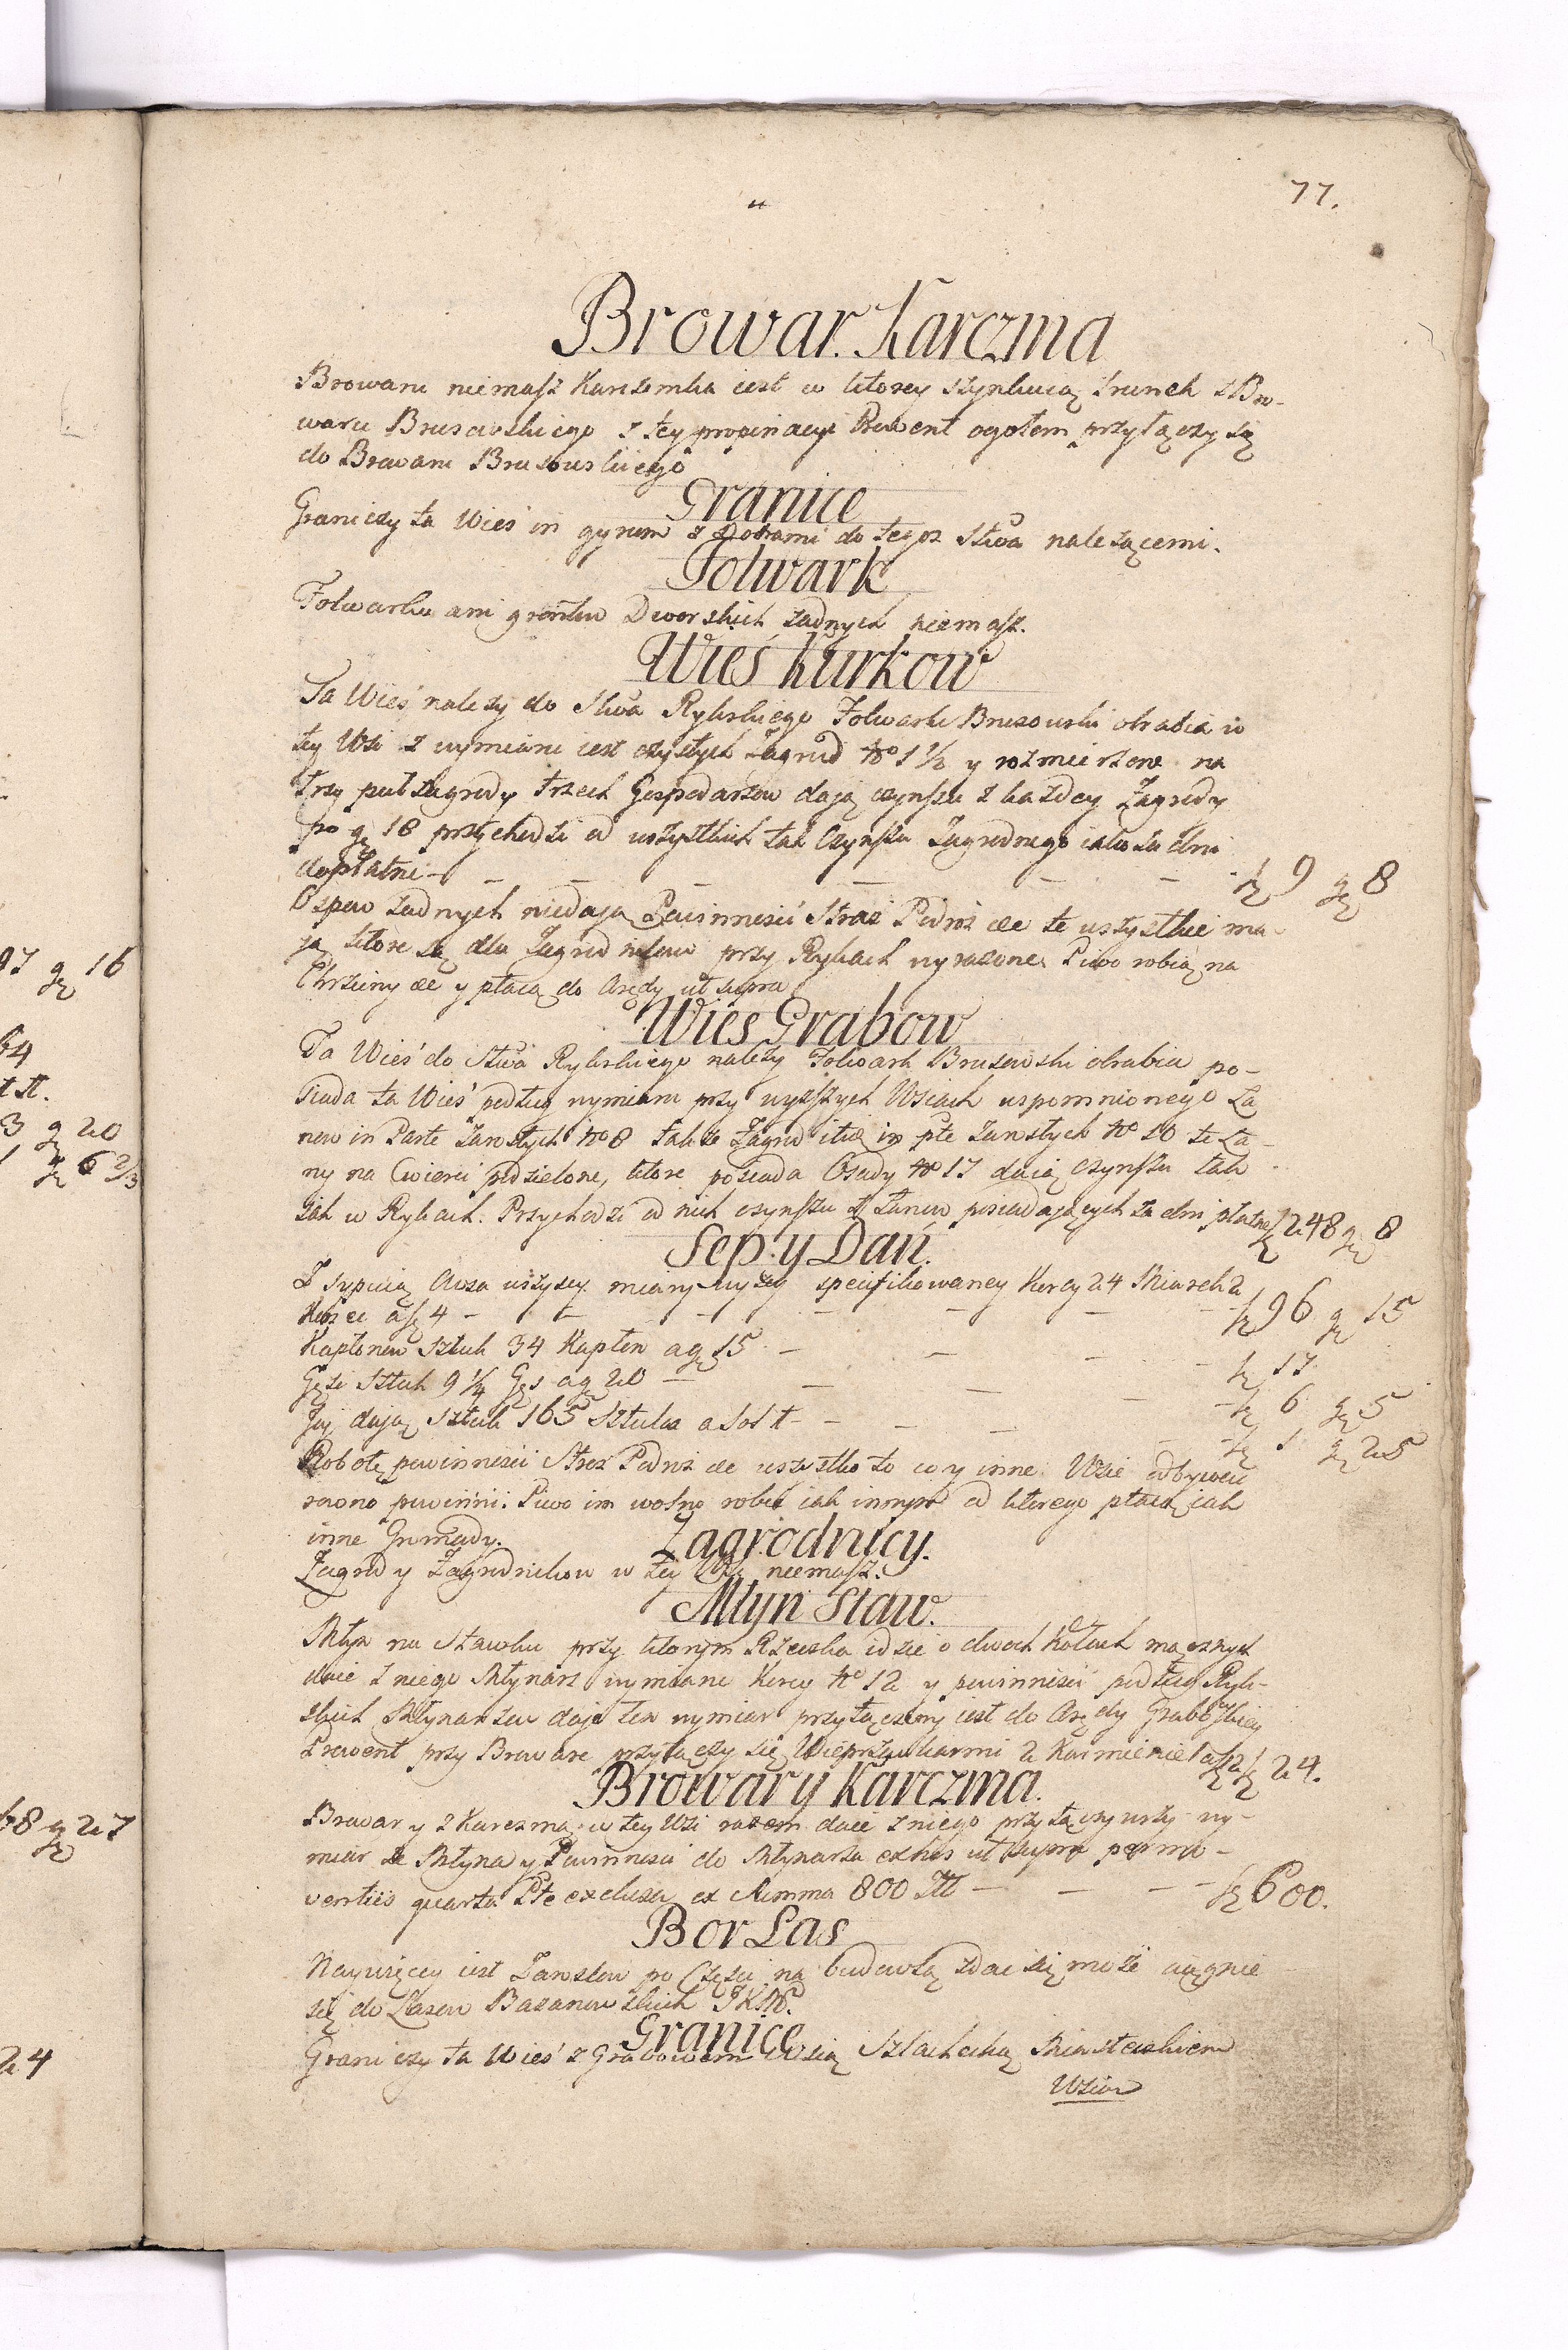 77.
Browar. Karczma
Browaru niemasz Karczemka iest w ktorey szynkuią Trunek z Bro-
waru Brusowskiego z tey propinacyi Prowent ogołem przyłączy się
do Browaru Brusowskiego
Granice
Graniczy ta Wieś in gyrum z Dobrami do tegoz Stwa nalezącemi.
Folwark
Folwarku ani grontow Dworskich zadnych niemasz.
Wieś Kurkow
Ta Wieś nalezy do Stwa Rykskiego Folwark Brusowski obrabia w
tey Wsi z wymiaru iest czystych Zagrod No 1 1/2 y rozmierzone na
trzy pułzagrody trzech Gospodarzow dają czynszu z kazdey Zagrody
po g 18 przychodzi od wszystkich tak Czynszu Zagrodnego iako za dni
dopłatni - - - - - - f 9 g 8
Ospow zadnych niedają Powinnosci Straz Podroz &c te wszystkie ma-
ją ktore są dla Zagrodnikow przy Rykach wyrazone Piwo robią na
Chrzciny &c y płacą do Arędy ut supra
Wieś Grabow
Ta Wieś do Stwa Rykskiego nalezy Folwark Brusowski obrabia po-
siada ta Wieś podług wymiaru przy wyzszych Wsiach wspomnionego Ła
now in Parte Zarosłych No 8 takze Zagrod itid in pte Zarosłych No 10 te Ła-
ny na Cwierci podzielone, ktore posiada Osady No 17 daią czynszu tak
iak w Rykach. Przychodzi od nich czynszu z Łanow posiadających za dni płatne f 248 g 8
Sep y Dań.
Zsypuią Owsa wszyscy miary wyzey specifikowaney Korcy 24 Miarek 2
Korzec a f 4 - - - - - - f 96 g 15
Kapłonow sztuk 34 Kapłon a g 15 - - - - f 17
Gęsi Sztuk 9 1/4 Gęs a g 20 - - - - - f 6 g 5
Jaj dają Sztuk 165 Sztuka a Sol 1 - - - - - f 1 g 25
Robotę powinnosci Stroz Podroz &c wszystko to co y inne Wsie odbywać
rowno powinni. Piwo im wolno robić iak innym od ktorego płacą iak
inne Gromady.
Zagrodnicy.
Zagrod y Zagrodnikow w tey Wsi niemasz.
Młyn Staw.
Młyn na Stawku przy ktorym Rzeczka idzie o dwoch Kołach mącznych
daie z niego Młynarz wymiaru Korcy No 12 y powinnosci podług Ryk-
skich Młynarzow daje ten wymiar przyłączony iest do Arędy Grabowskiey
Prowent przy Browarze przyłączy się Wieprzow karmi 2 Karmienie a f 12 f 24.
Browar y Karczma.
Browar y z Karczmą w tey Wsi razem daie z niego przyłączywszy wy-
miar ze Młyna y Powinnosci do Młynarza exhos ut supra permo-
ventiis quarta Pte exclusa ex Summa 800 Złł - - - - f 600.
Bor Las
Naywięcey iest Zarosłow po Częsci na budowlą zdać się moze ciągnie
się do Lasow Bazanowskich JKM.
Granice
Graniczy ta Wieś z Grabowem Wsią Szlachecką Miasteczkiem
Wsiow
97 g 16
64
3 g 20
g 6 2/3
68 g 27
24